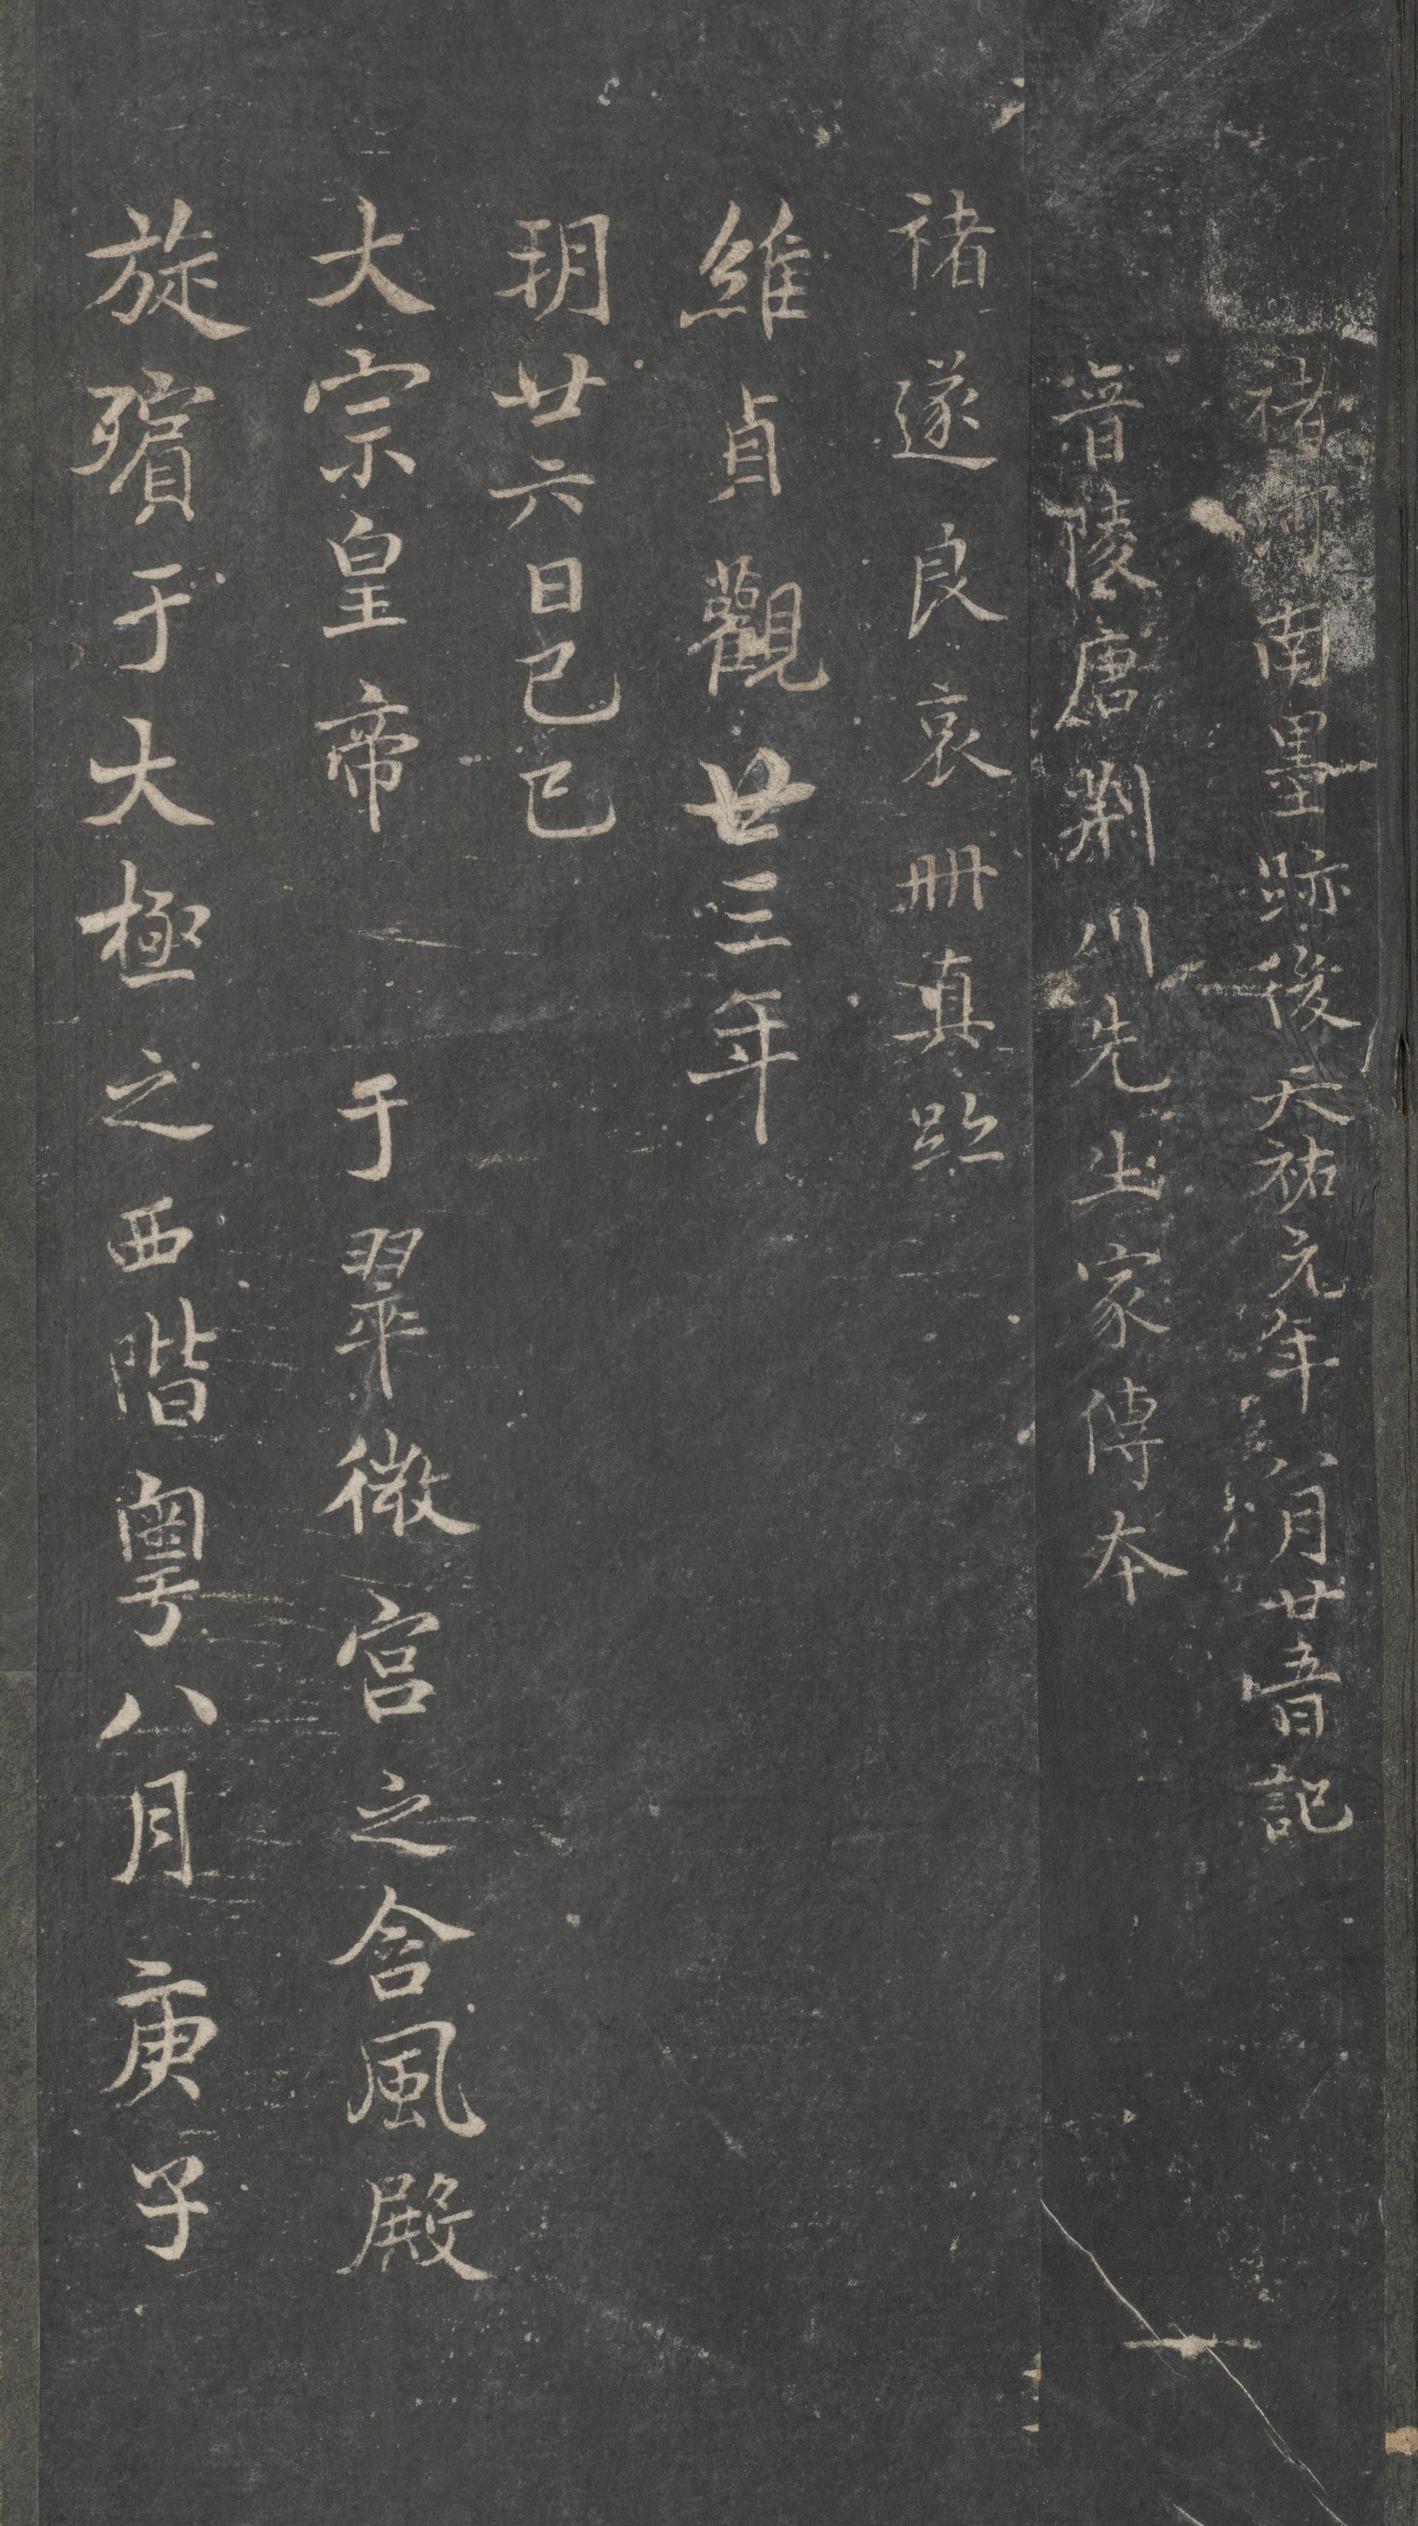 褚河南墨跡後天祐元年八月廿五日音記
晉陵唐荆川先生家傳本
褚遂良哀冊真跡
維貞觀廿三年
玥廿六日己巳
大宗皇帝 于翠微宮之含風殿
旋殯于大極之西階粵八月庚子